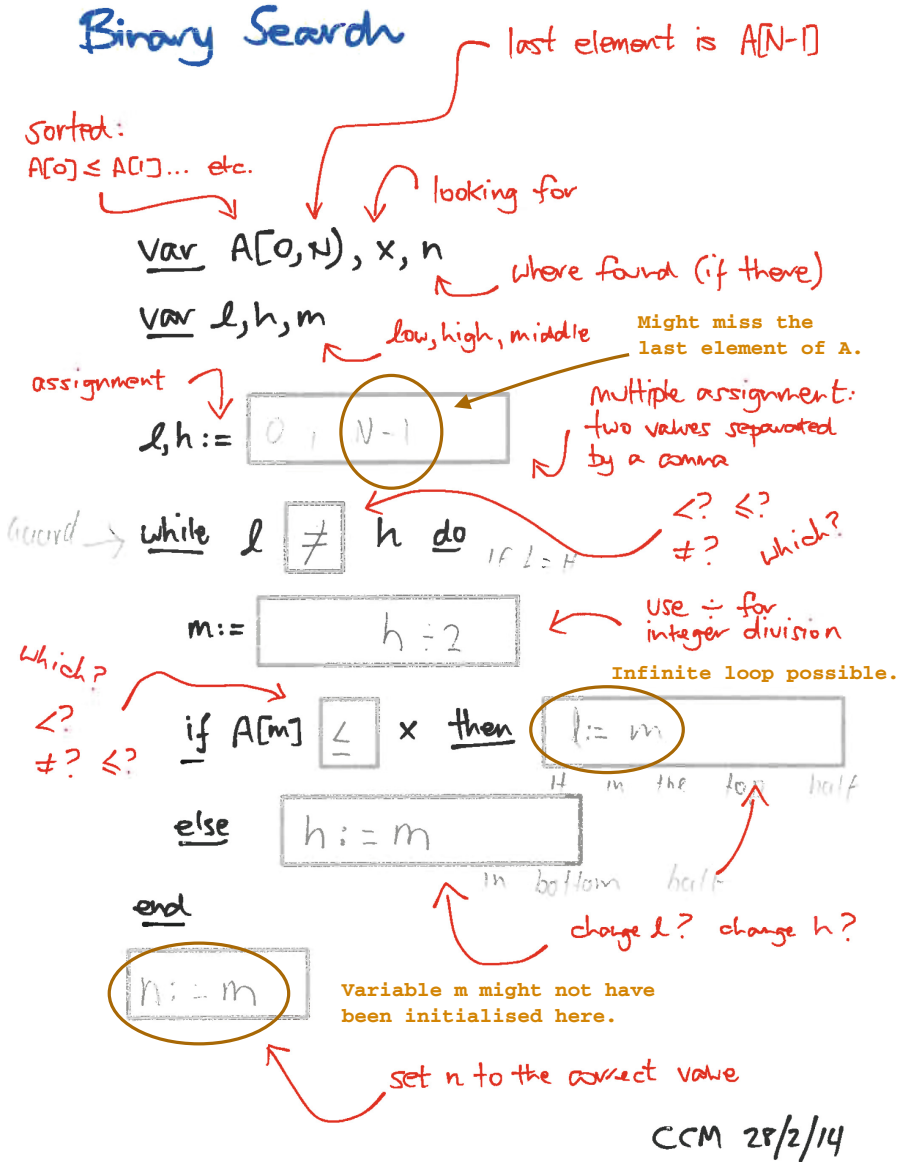 Binary Search
last element is A[N-1]
sorted:
A[0] ≤ A[1]... etc.
looking for
var A[0,N), x, n
where found (if there)
var l,h,m
low, high, middle
Might miss the
last element of A.
assignment
multiple assignment:
two values separated
by a comma
l,h := 0 , N-1
<? ≤?
≠? which?
while l ≠ h do
if L = H
use ÷ for
integer division
m:= h ÷ 2
Infinite loop possible.
which?
<?
≠? ≤?
if A[m] ≤ x then l:= m
in the top half
else h:=m
in bottom half
end
change l? change h?
n:=m
Variable m might not have
been initialised here.
set n to the correct value
CCM 28/2/14